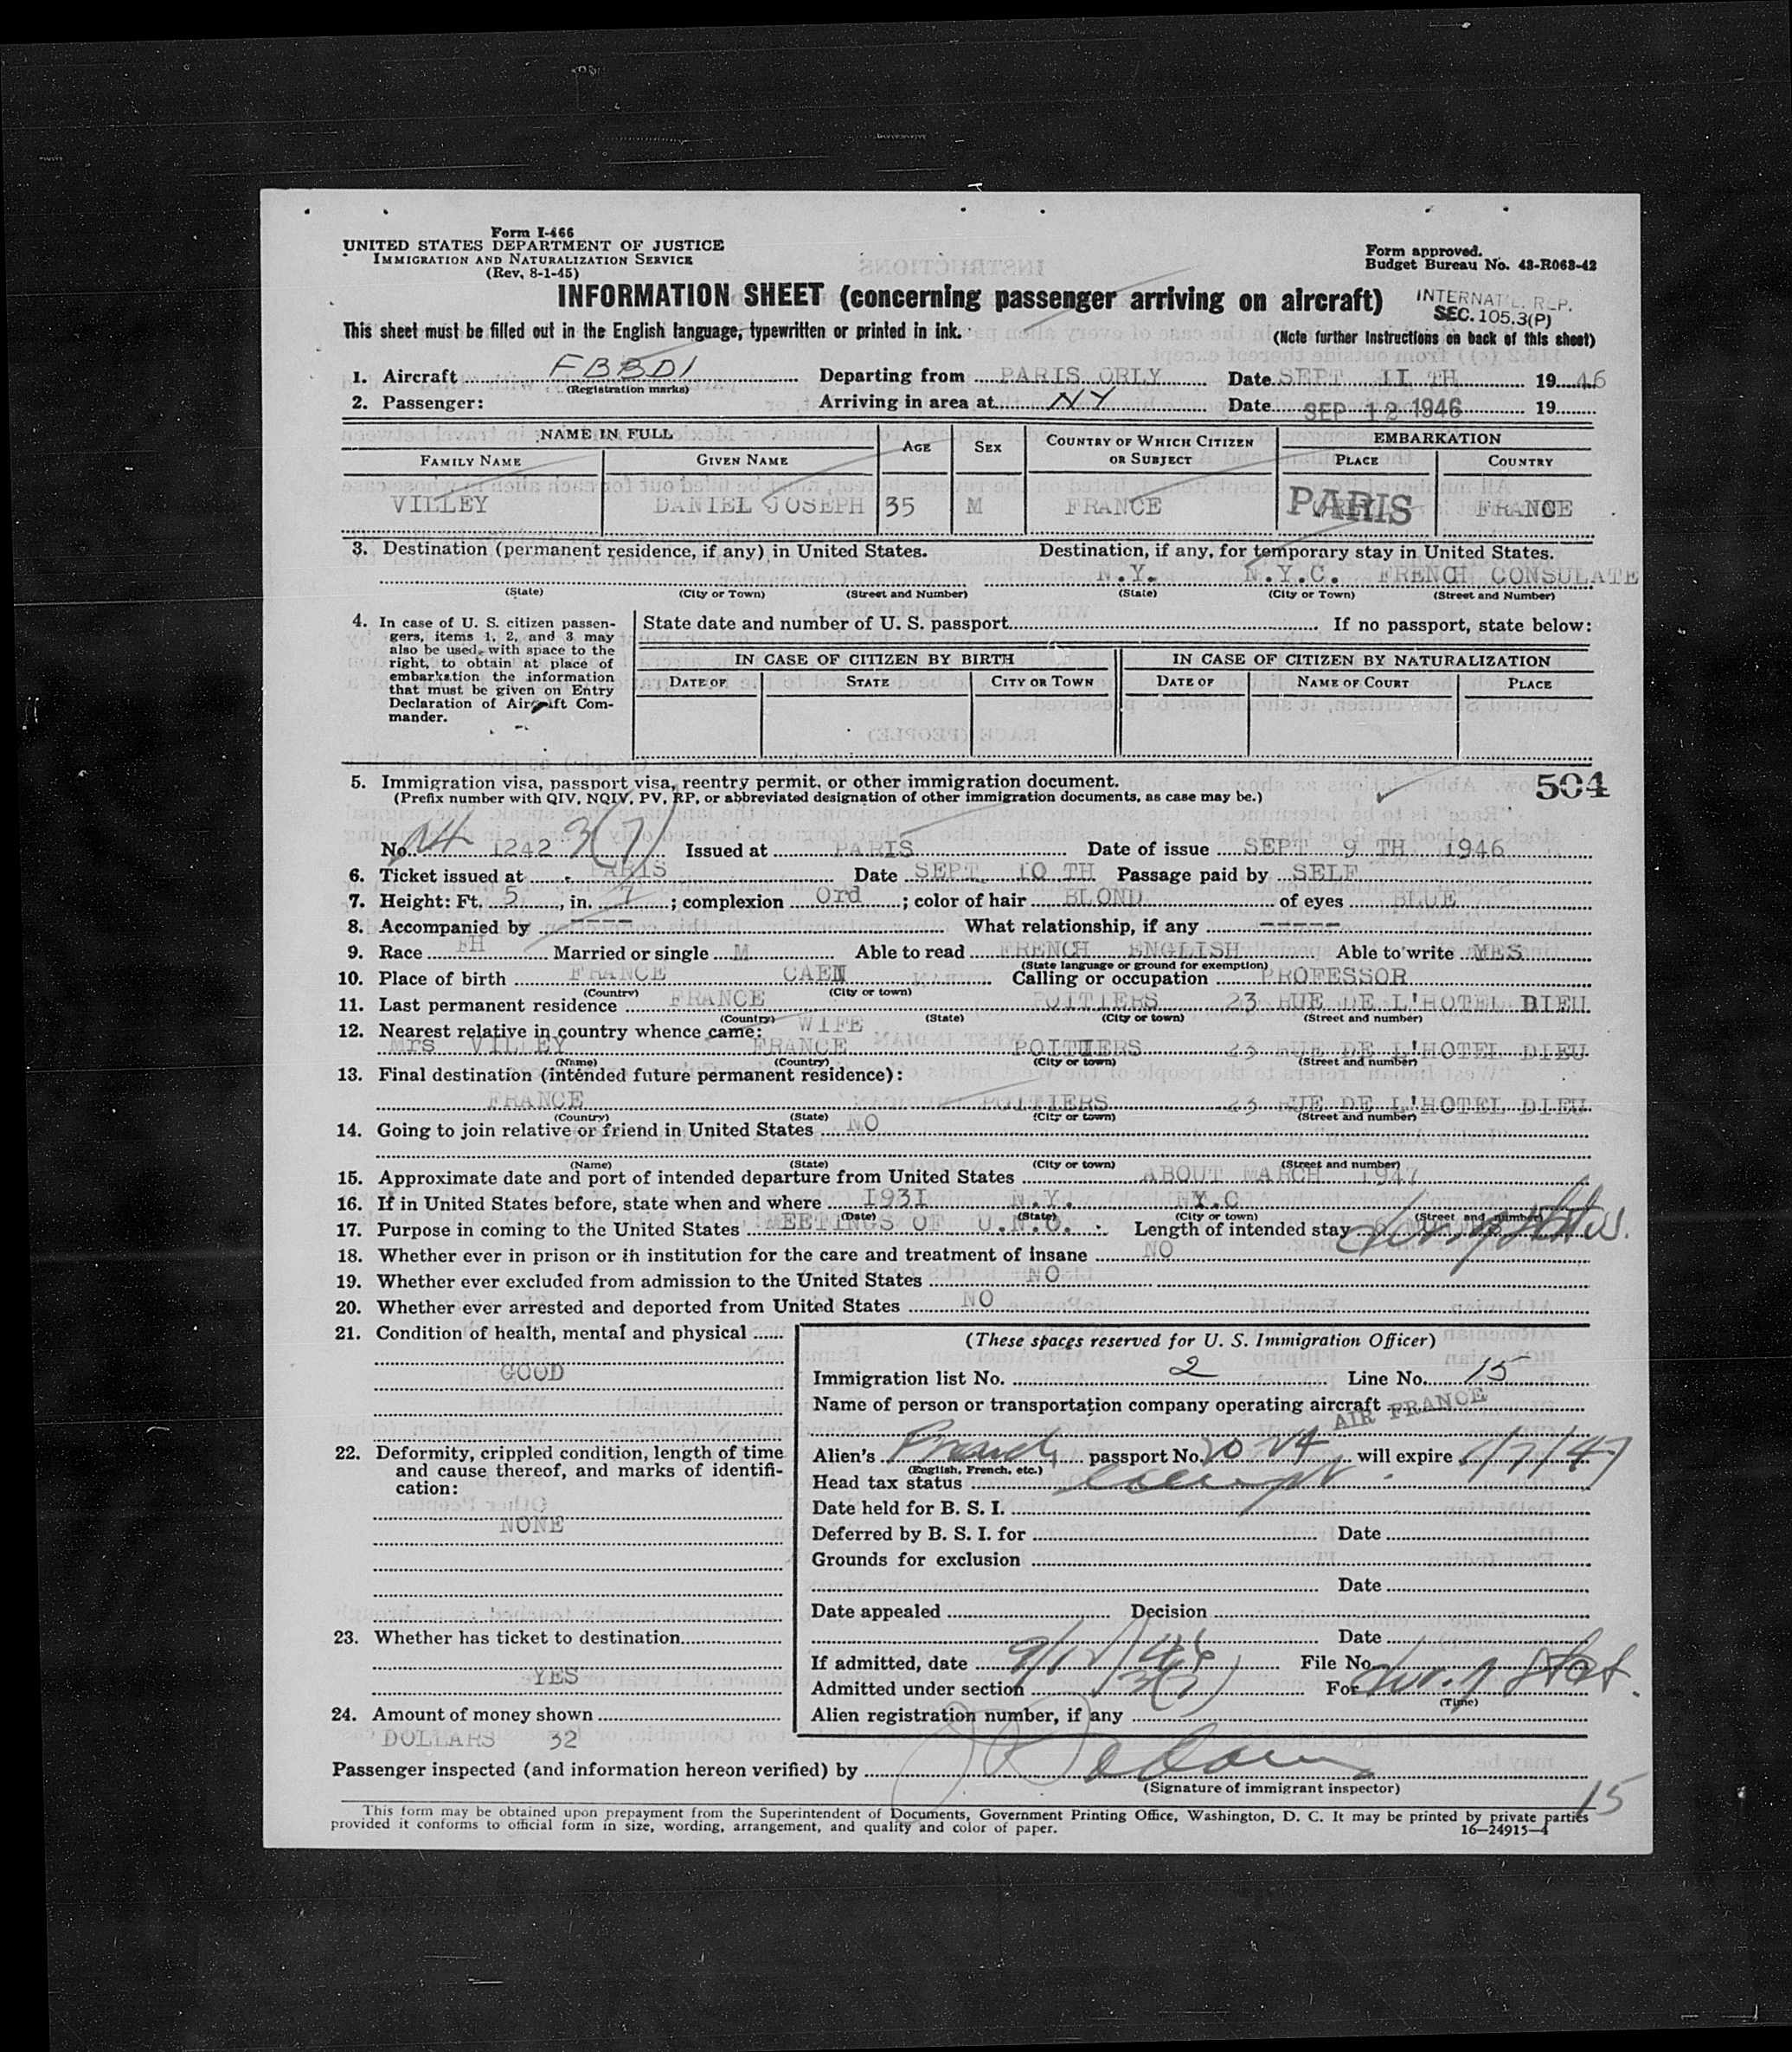 Form I-466
UNITED STATES DEPARTMENT OF JUSTICE
IMMIGRATION AND NATURALIZATION SERVICE
(Rev. 8-1-45)
Form approved.
Budget Bureau No. 43-R063-42
INFORMATION SHEET (concerning passenger arriving on aircraft)
INTERNAT'L. REP.
SEC. 105.3(P)
This sheet must be filled out in the English language, typewritten or printed in ink.
(Note further instructions on back of this sheet)
1. Aircraft FBBDI Departing from PARIS ORLY Date SEPT II TH 1946
(Registration marks)
2. Passenger: Arriving in area at NY Date SEP 12 1946 19
NAME IN FULL AGE SEX COUNTRY OF WHICH CITIZEN OR SUBJECT EMBARKATION
FAMILY NAME GIVEN NAME PLACE COUNTRY
VILLEY DANIEL JOSEPH 35 M FRANCE PARIS FRANCE
3. Destination (permanent residence, if any) in United States. Destination, if any, for temporary stay in United States.
N.Y. N.Y.C. FRENCH CONSULATE
(State) (City or Town) (Street and Number) (State) (City or Town) (Street and Number)
4. In case of U. S. citizen passengers, items 1, 2, and 3 may also be used, with space to the right, to obtain at place of embarkation the information that must be given on Entry Declaration of Aircraft Commander.
State date and number of U. S. passport If no passport, state below:
IN CASE OF CITIZEN BY BIRTH IN CASE OF CITIZEN BY NATURALIZATION
DATE OF STATE CITY OR TOWN DATE OF NAME OF COURT PLACE
5. Immigration visa, passport visa, reentry permit, or other immigration document. 504
(Prefix number with QIV, NQIV, PV, RP, or abbreviated designation of other immigration documents, as case may be.)
No. 1242 3(7) Issued at PARIS Date of issue SEPT 9 TH 1946
6. Ticket issued at PARIS Date SEPT. 10 TH Passage paid by SELF
7. Height: Ft. 5, in. 7; complexion Ord; color of hair BLOND of eyes BLUE
8. Accompanied by ----- What relationship, if any ------
9. Race FH Married or single M Able to read FRENCH ENGLISH Able to write
(State language or ground for exemption)
10. Place of birth FRANCE CAEN Calling or occupation PROFESSOR
(Country) (City or town)
11. Last permanent residence FRANCE POITIERS 23 RUE DE L'HOTEL DIEU
(Country) (State) (City or town) (Street and number)
12. Nearest relative in country whence came: WIFE
Mrs VILLEY FRANCE POITIERS 23 RUE DE L'HOTEL DIEU
(Name) (Country) (City or town) (Street and number)
13. Final destination (intended future permanent residence):
FRANCE POITIERS 23 RUE DE L'HOTEL DIEU
(Country) (State) (City or town) (Street and number)
14. Going to join relative or friend in United States NO
(Name) (State) (City or town) (Street and number)
15. Approximate date and port of intended departure from United States ABOUT MARCH 1947
16. If in United States before, state when and where I93I N.Y. NY.C
(Date) (State) (City or town) (Street and number)
17. Purpose in coming to the United States MEETINGS OF U.N.O. Length of intended stay
18. Whether ever in prison or in institution for the care and treatment of insane NO
19. Whether ever excluded from admission to the United States NO
20. Whether ever arrested and deported from United States NO
21. Condition of health, mental and physical
GOOD
22. Deformity, crippled condition, length of time and cause thereof, and marks of identification:
NONE
23. Whether has ticket to destination
YES
24. Amount of money shown
DOLLARS 32
(These spaces reserved for U. S. Immigration Officer)
Immigration list No. 2 Line No. 15
Name of person or transportation company operating aircraft AIR FRANCE
Alien's French passport No. will expire
(English, French, etc.)
Head tax status exempt
Date held for B. S. I.
Deferred by B. S. I. for Date
Grounds for exclusion
Date
Date appealed Decision
Date
If admitted, date 9/12/46 File No.
Admitted under section 3(7) For
(Time)
Alien registration number, if any
Passenger inspected (and information hereon verified) by
(Signature of immigrant inspector)
15
This form may be obtained upon prepayment from the Superintendent of Documents, Government Printing Office, Washington, D. C. It may be printed by private parties
provided it conforms to official form in size, wording, arrangement, and quality and color of paper. 16—24915-4